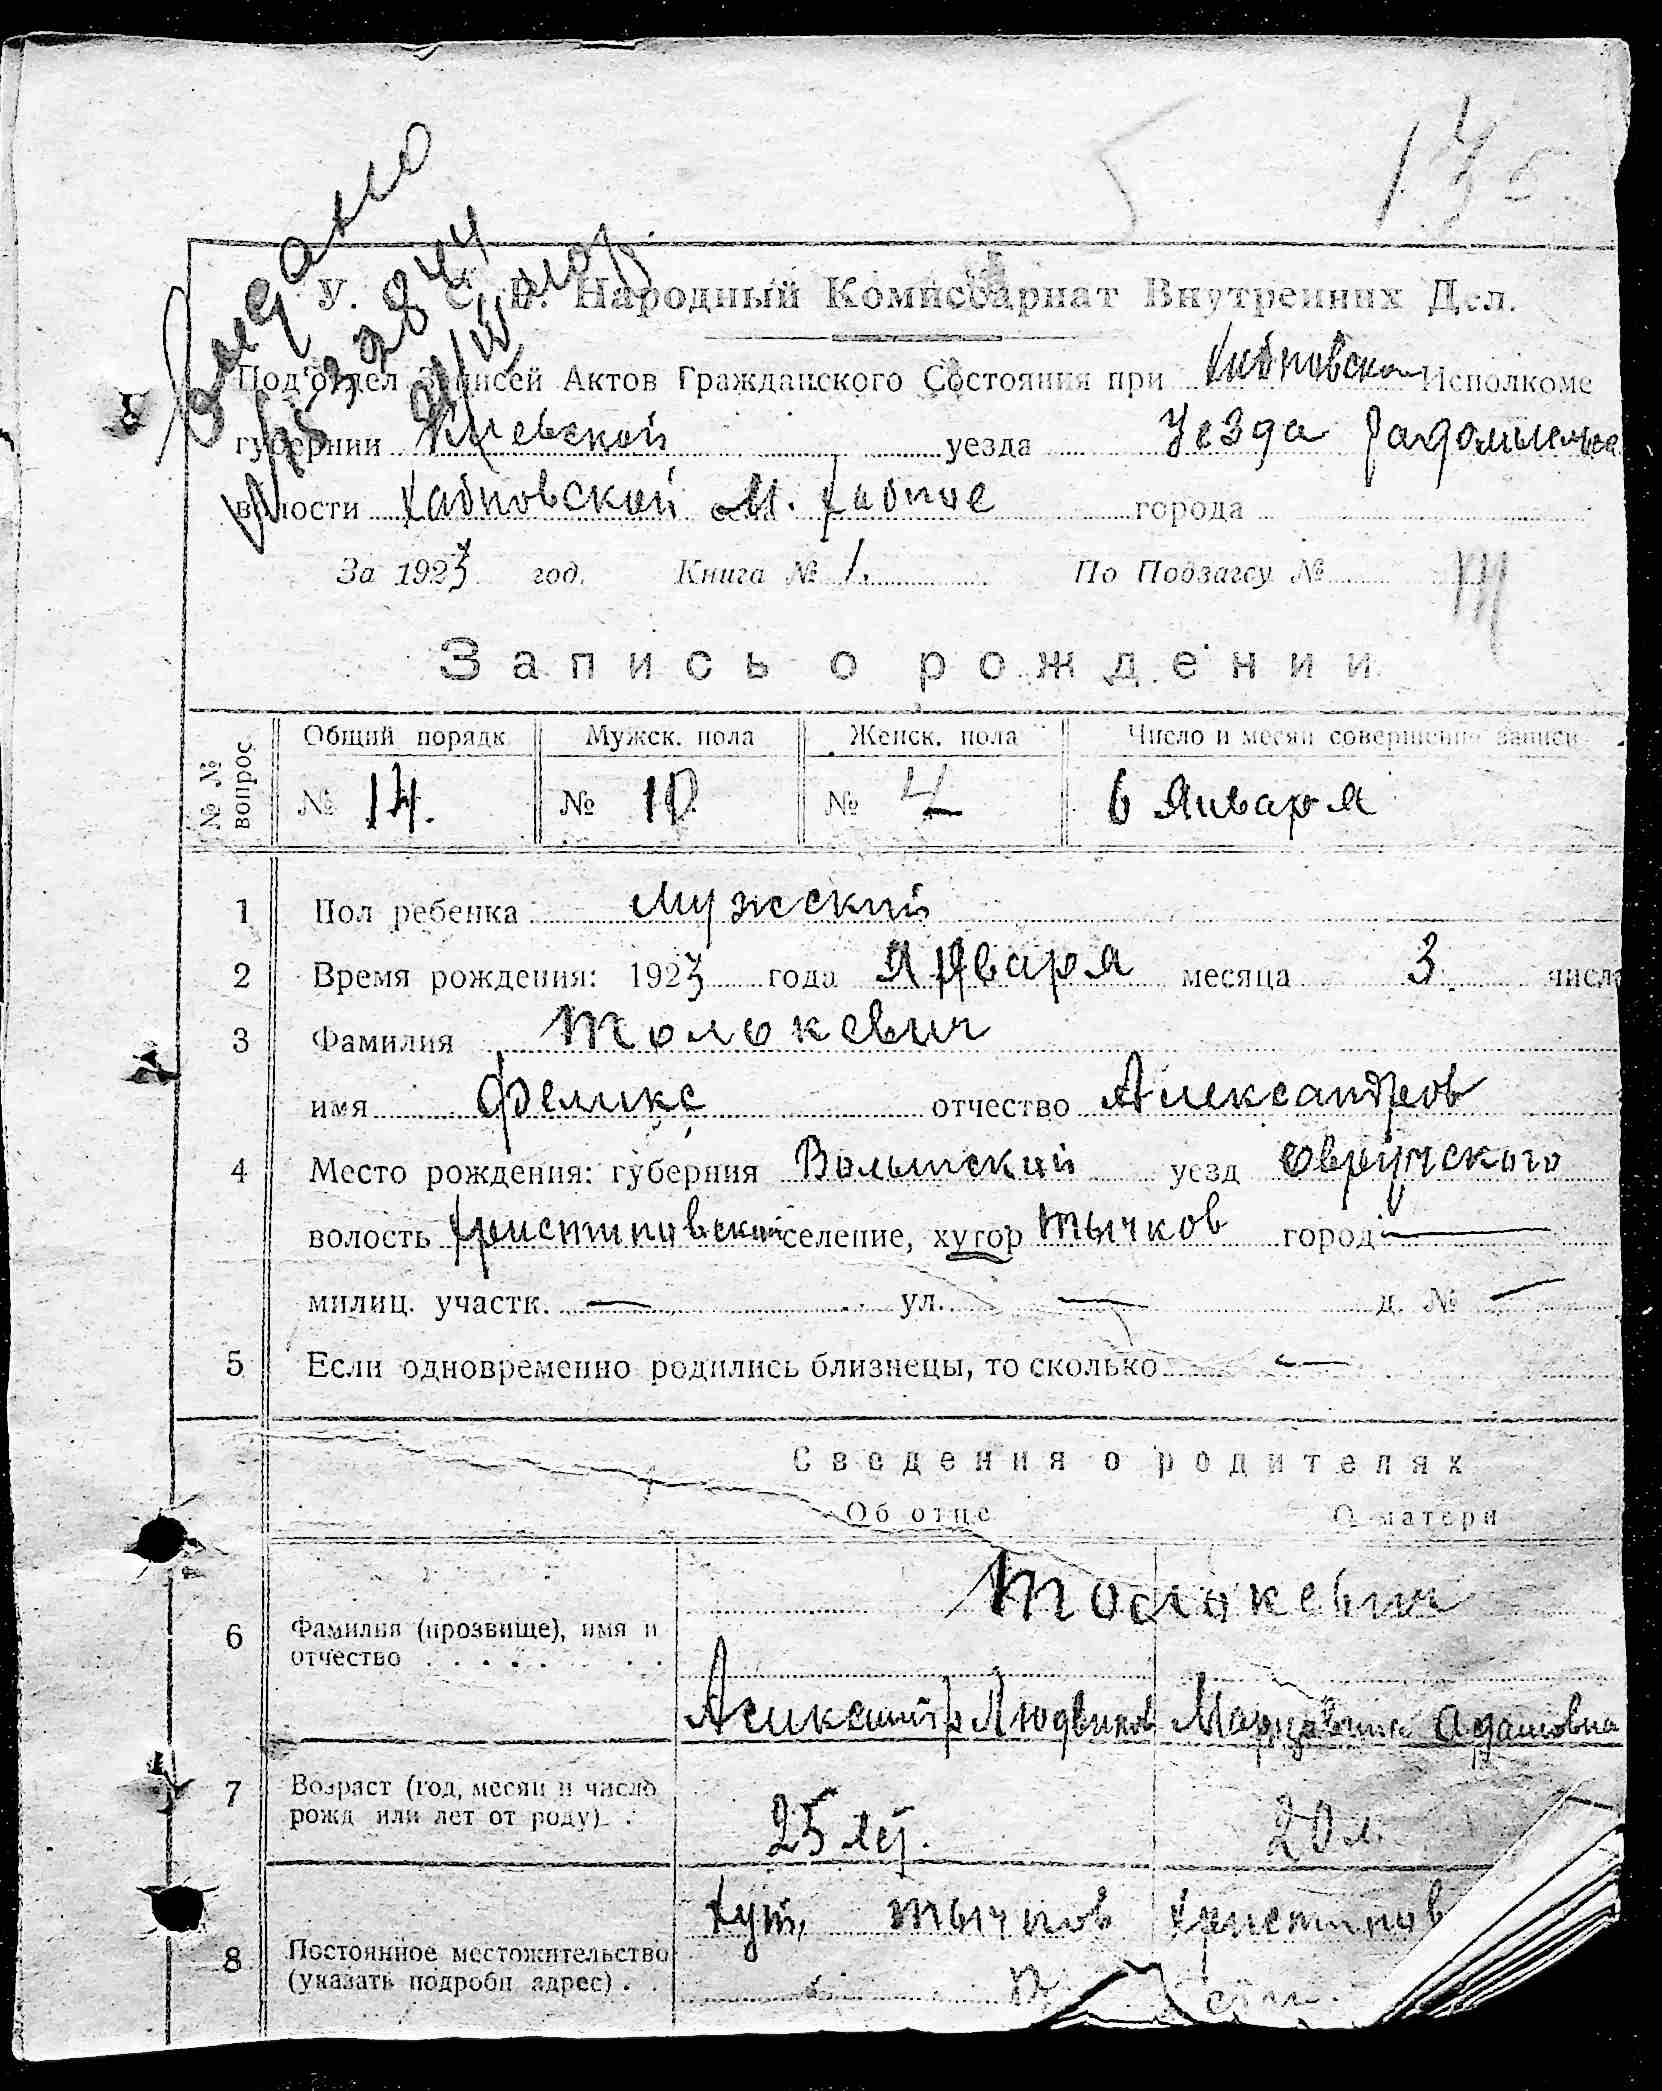 175
Выдано
У. С. С. Р. Народный Комиссариат Внутренних Дел.
Под'отдел Записей Актов Гражданского Состояния при Хабновском Исполкоме
губернии Киевской уезда Уезда Радомысльск
волости Хабновской М. Хабное города
За 1923 год. Книга № 1. По Подзагсу №
Запись о рождении
№ № вопрос. Общий порядк. Мужск. пола Женск. пола Число и месяц совершения записи
№ 14. № 10 № 4 6 Января
1 Пол ребенка Мужский
2 Время рождения: 1923 года Января месяца 3 числа
3 Фамилия Толькевич
имя Феликс отчество Александров
4 Место рождения: губерния Волынской уезд Овручского
волость Христиновской селение, хутор Тычков город —
милиц. участк. — ул. — д. № —
5 Если одновременно родились близнецы, то сколько —
Сведения о родителях
Об отце О матери
Толькевич
6 Фамилия (прозвище), имя и
отчество
Александр Людвиков Марцелина Адамовна
7 Возраст (год, месяц и число
рожд или лет от роду)
25 лет. 20 л.
Хут. Тычков Христинов
8 Постоянное местожительство
(указать подробн адрес)